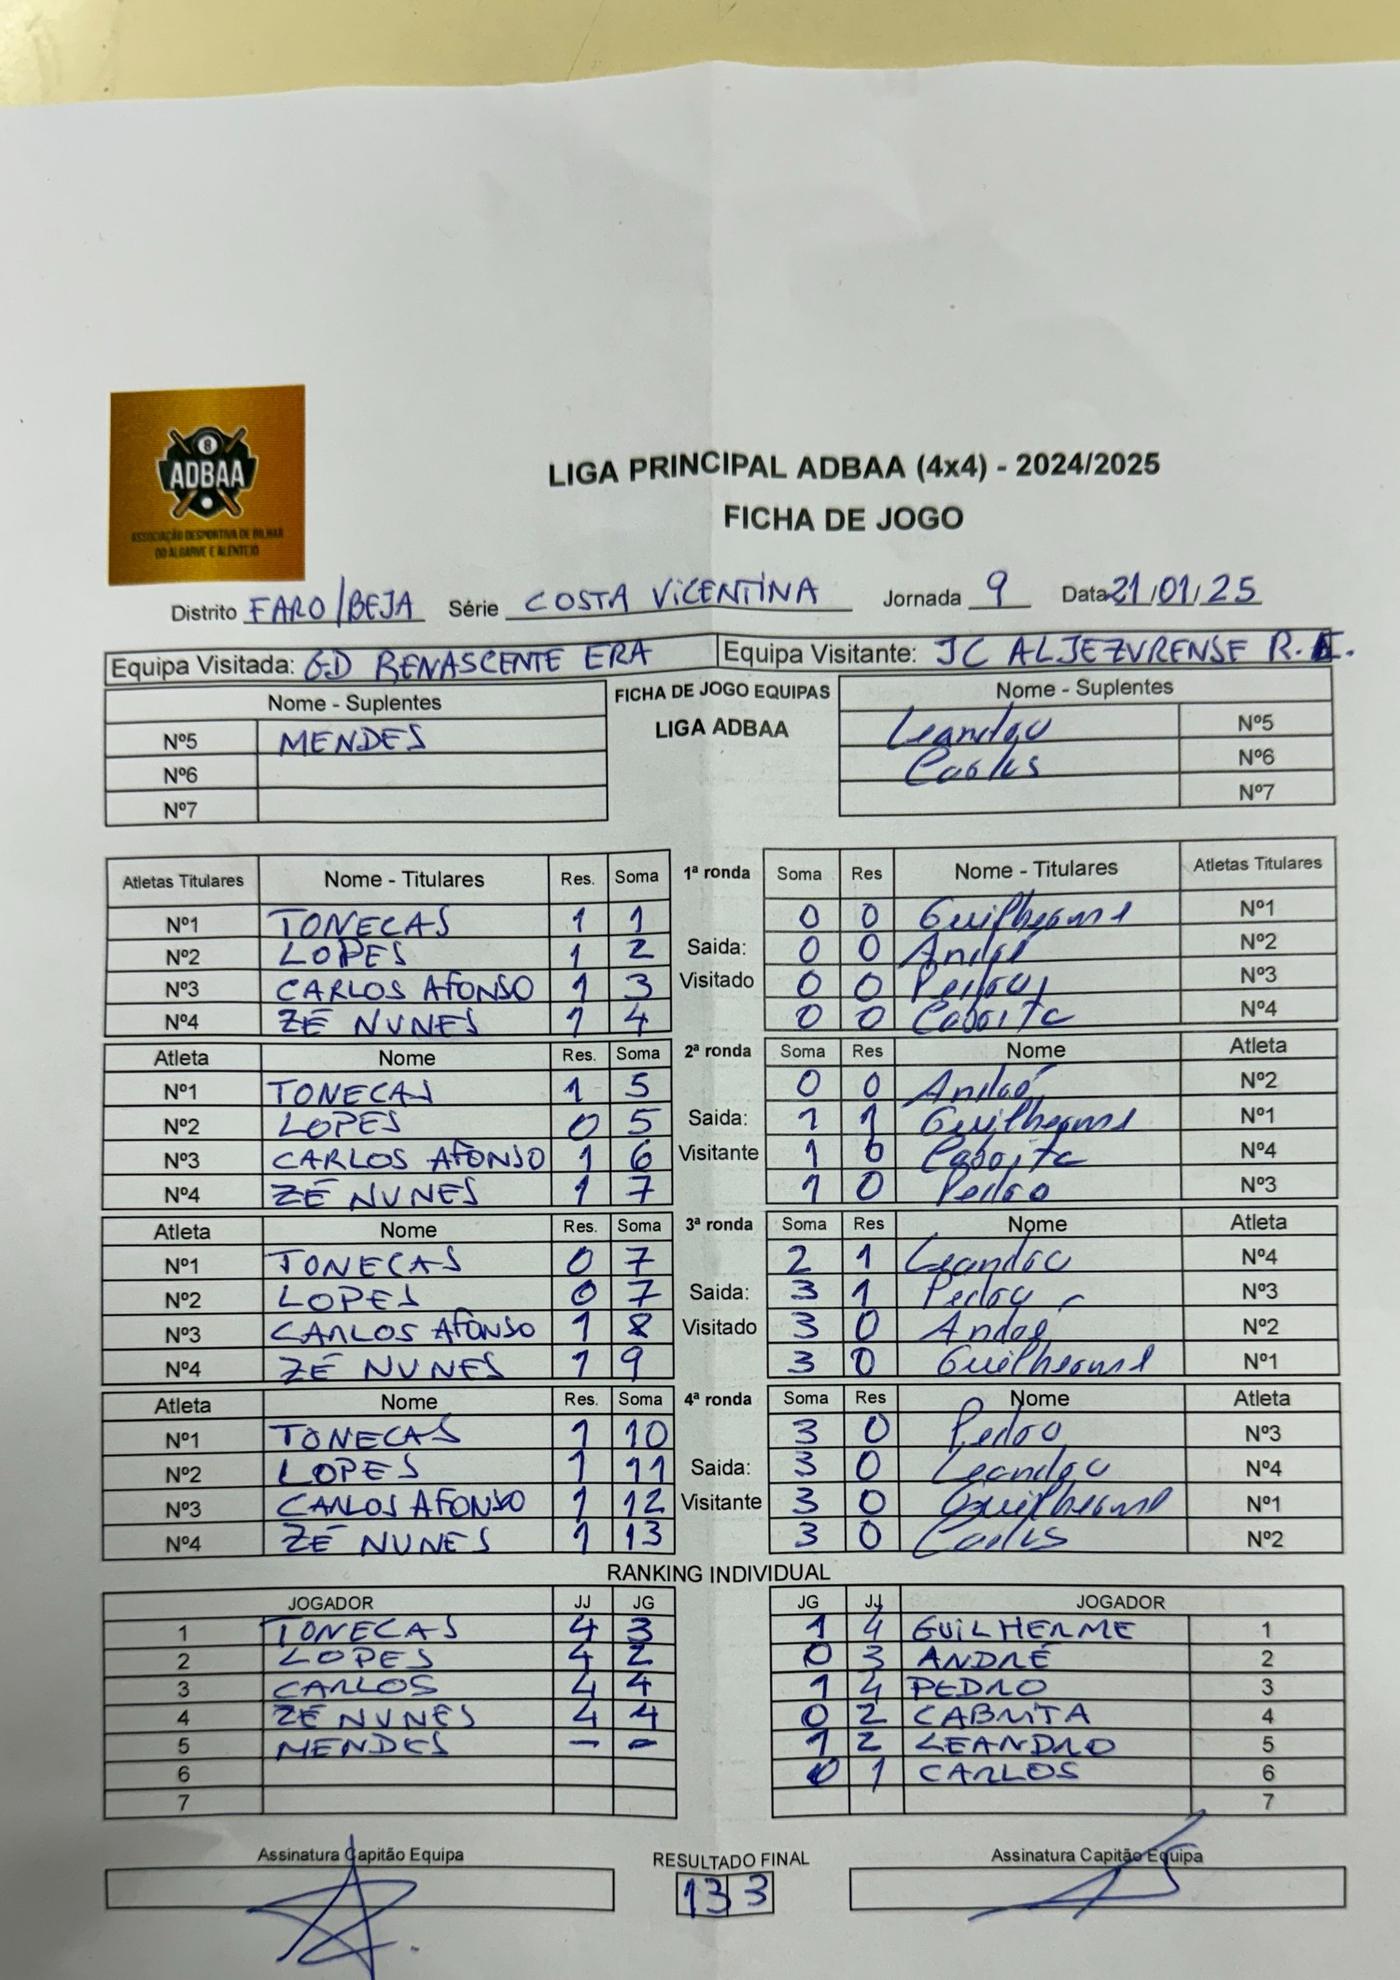 8
ADBAA
ASSOCIAÇÃO DESPORTIVA DE BILHAR
DO ALGARVE E ALENTEJO
LIGA PRINCIPAL ADBAA (4x4) - 2024/2025
FICHA DE JOGO
Distrito FARO/BEJA Série COSTA VICENTINA Jornada 9 Data 21/01/25
Equipa Visitada: GD RENASCENTE ERA Equipa Visitante: JC ALJEZURENSE R.I.
Nome - Suplentes FICHA DE JOGO EQUIPAS Nome - Suplentes
Nº5 MENDES LIGA ADBAA Leandro Nº5
Nº6 Carlos Nº6
Nº7 Nº7
Atletas Titulares Nome - Titulares Res. Soma 1ª ronda Soma Res Nome - Titulares Atletas Titulares
Nº1 TONECAS 1 1 0 0 Guilherme Nº1
Nº2 LOPES 1 2 Saida: 0 0 André Nº2
Nº3 CARLOS AFONSO 1 3 Visitado 0 0 Pedro Nº3
Nº4 ZÉ NUNES 1 4 0 0 Cabrita Nº4
Atleta Nome Res. Soma 2ª ronda Soma Res Nome Atleta
Nº1 TONECAS 1 5 0 0 André Nº2
Nº2 LOPES 0 5 Saida: 1 1 Guilherme Nº1
Nº3 CARLOS AFONSO 1 6 Visitante 1 0 Cabrita Nº4
Nº4 ZÉ NUNES 1 7 1 0 Pedro Nº3
Atleta Nome Res. Soma 3ª ronda Soma Res Nome Atleta
Nº1 TONECAS 0 7 2 1 Leandro Nº4
Nº2 LOPES 0 7 Saida: 3 1 Pedro Nº3
Nº3 CARLOS AFONSO 1 8 Visitado 3 0 André Nº2
Nº4 ZÉ NUNES 1 9 3 0 Guilherme Nº1
Atleta Nome Res. Soma 4ª ronda Soma Res Nome Atleta
Nº1 TONECAS 1 10 3 0 Pedro Nº3
Nº2 LOPES 1 11 Saida: 3 0 Leandro Nº4
Nº3 CARLOS AFONSO 1 12 Visitante 3 0 Guilherme Nº1
Nº4 ZÉ NUNES 1 13 3 0 Carlos Nº2
RANKING INDIVIDUAL
JOGADOR JJ JG JG JJ JOGADOR
1 TONECAS 4 3 1 4 GUILHERME 1
2 LOPES 4 2 0 3 ANDRÉ 2
3 CARLOS 4 4 1 4 PEDRO 3
4 ZÉ NUNES 4 4 0 2 CABRITA 4
5 MENDES - - 1 2 LEANDRO 5
6 0 1 CARLOS 6
7 7
Assinatura Capitão Equipa RESULTADO FINAL Assinatura Capitão Equipa
13 3